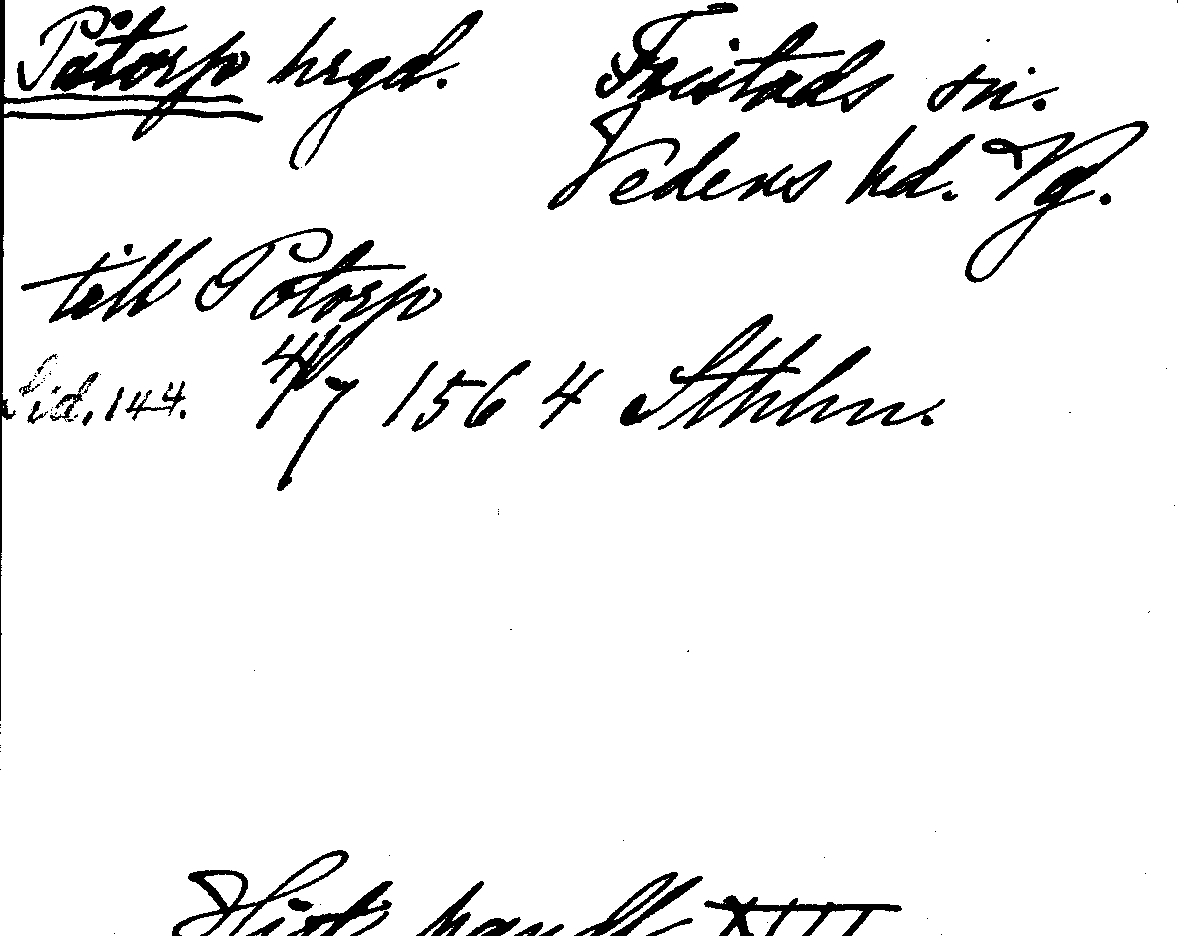 Påtorp hrgd. Fristads sn.
Vedens hd. Vg.
till Potorp
Sid. 144. 4/7 1564 Sthlm.
Hist. handl. XIII